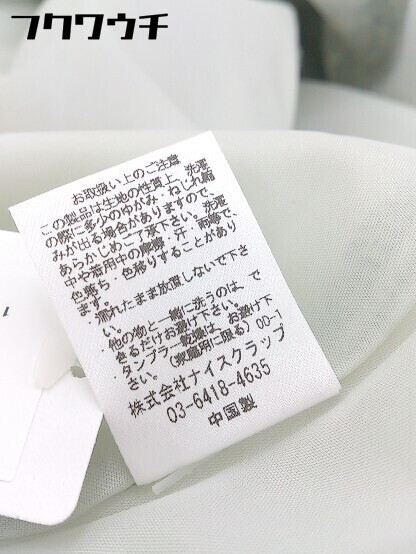 フクワウチ
お取扱い上のご注意
この製品は生地の性質上、洗濯
の際に多少のゆがみ・ねじれ縮
みが出る場合がありますので、
あらかじめご了承下さい。洗濯
中や着用中の摩擦・汗・雨等で、
色落ち 色移りすることがあり
ます。
・濡れたまま放置しないで下さ
い。
・他の物と一緒に洗うのは、で
きるだけお避け下さい。
タンブラー乾燥は、お避け下
さい。(家庭用に限る)00-1
株式会社ナイスクラップ
03-6418-4635
中国製